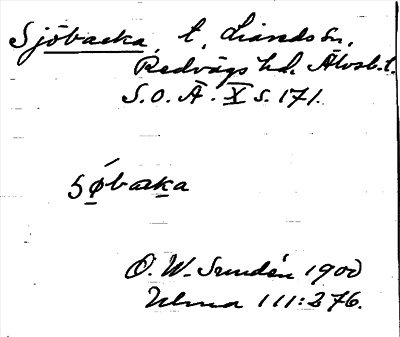 Sjöbacka, t, Liareds sn,
Redvägs hd. Älvsb. l.
S.O.Ä. X s. 171.
sǿbacka
O. W. Sundén 1900
Ulma 111:276.